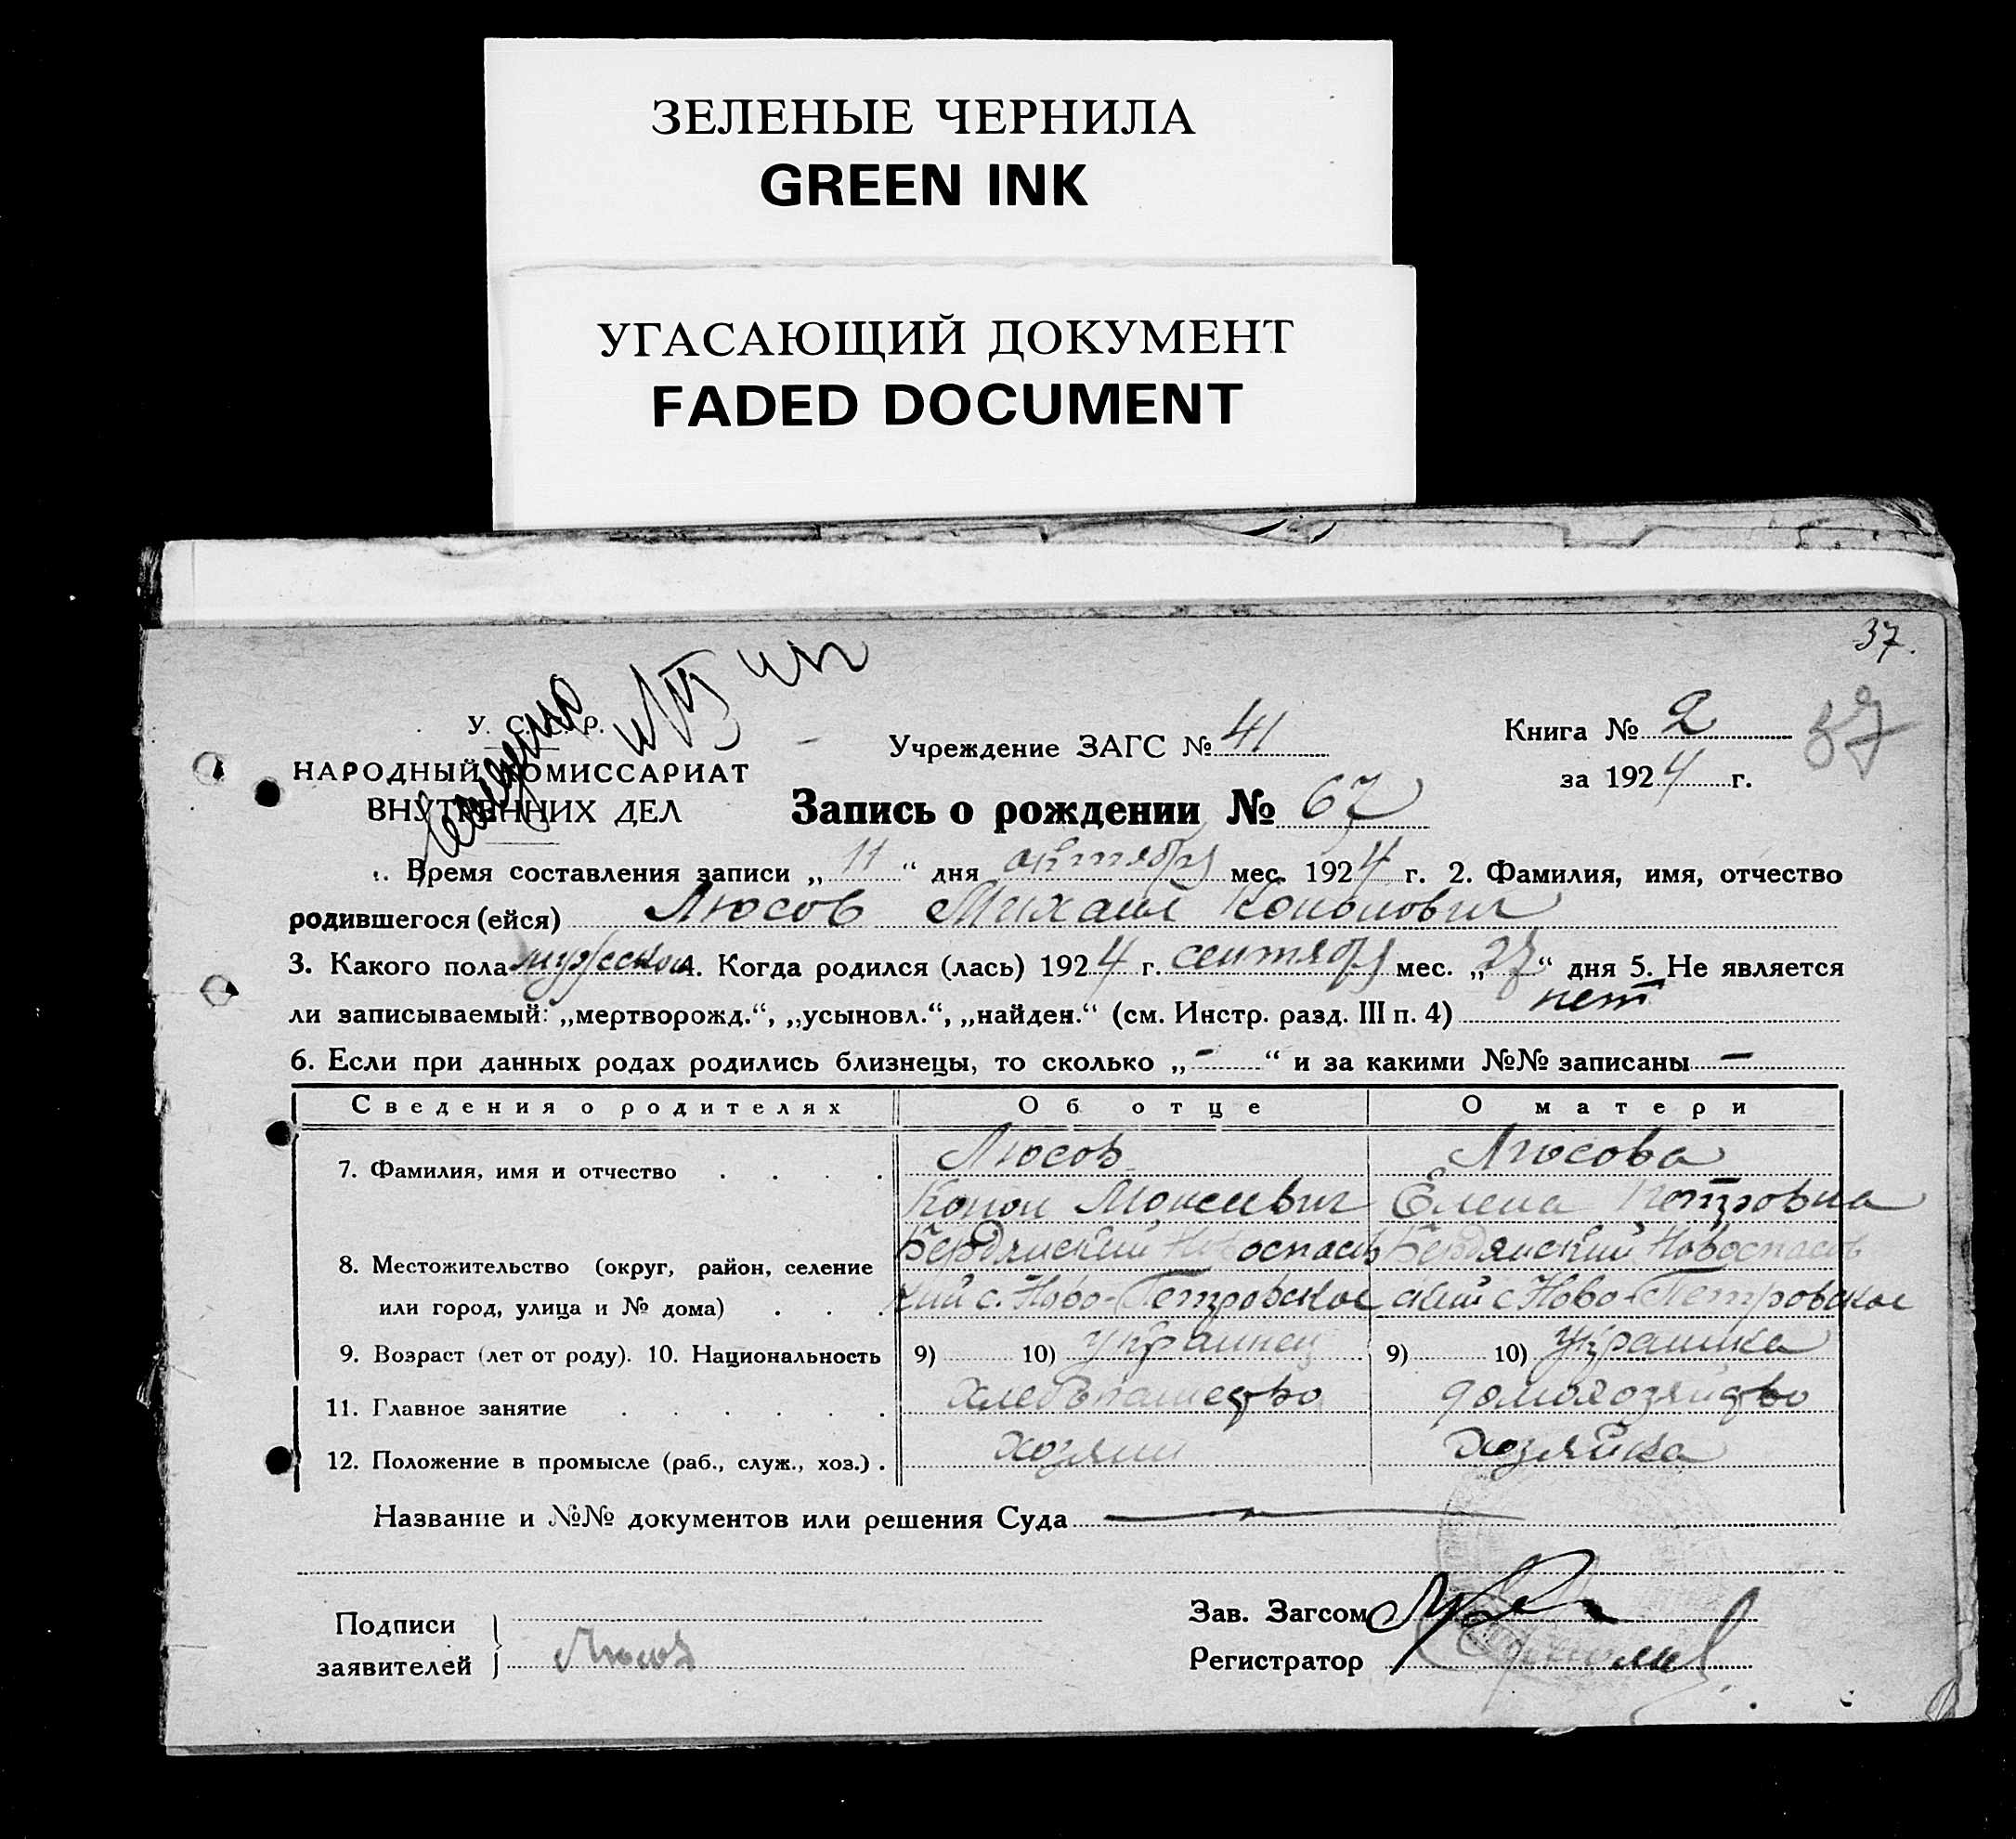 ЗЕЛЕНЫЕ ЧЕРНИЛА
GREEN INK
УГАСАЮЩИЙ ДОКУМЕНТ
FADED DOCUMENT
37.
37
У. С. С. Р.
НАРОДНЫЙ КОМИССАРИАТ
ВНУТРЕННИХ ДЕЛ
Учреждение ЗАГС № 41
Книга № 2
за 1924 г.
Запись о рождении № 67
1. Время составления записи „11“ дня октября мес. 1924 г. 2. Фамилия, имя, отчество
родившегося (ейся) Люсов Михаил Кононович
3. Какого пола мужеского 4. Когда родился (лась) 1924 г. сентября мес. „27“ дня 5. Не является
ли записываемый: „мертворожд.“, „усыновл.“, „найден.“ (см. Инстр. разд. III п. 4) нет
6. Если при данных родах родились близнецы, то сколько „-“ и за какими №№ записаны -
Сведения о родителях Об отце О матери
7. Фамилия, имя и отчество . . . . Люсов Люсова
Конон Моисеевич Елена Петровна
8. Местожительство (округ, район, селение Бердянский Новоспасов Бердянский Новоспасов
или город, улица и № дома) . . . ский с. Ново-Петровское ский с Ново-Петровское
9. Возраст (лет от роду). 10. Национальность 9) 10) Украинец 9) 10) Украинка
11. Главное занятие . . . . . . Хлебопашество домохозяйство
12. Положение в промысле (раб., служ., хоз.) . хозяин хозяйка
Название и №№ документов или решения Суда
Подписи
заявителей Люсов
Зав. Загсом
Регистратор